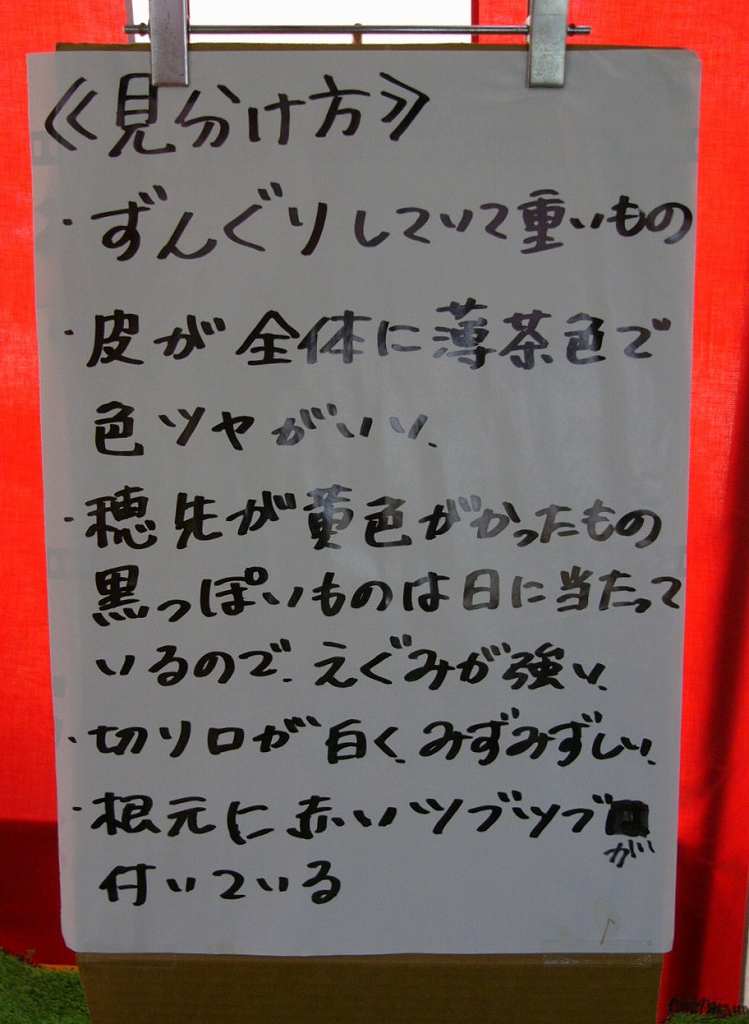 《見分け方》
・ずんぐりしていて重いもの
・皮が全体に薄茶色で
色ツヤがいい、
・穂先が黄色がかったもの
黒っぽいものは日に当たって
いるので、えぐみが強い、
・切り口が白く、みずみずしい、
・根元に赤いツブツブが
付いている